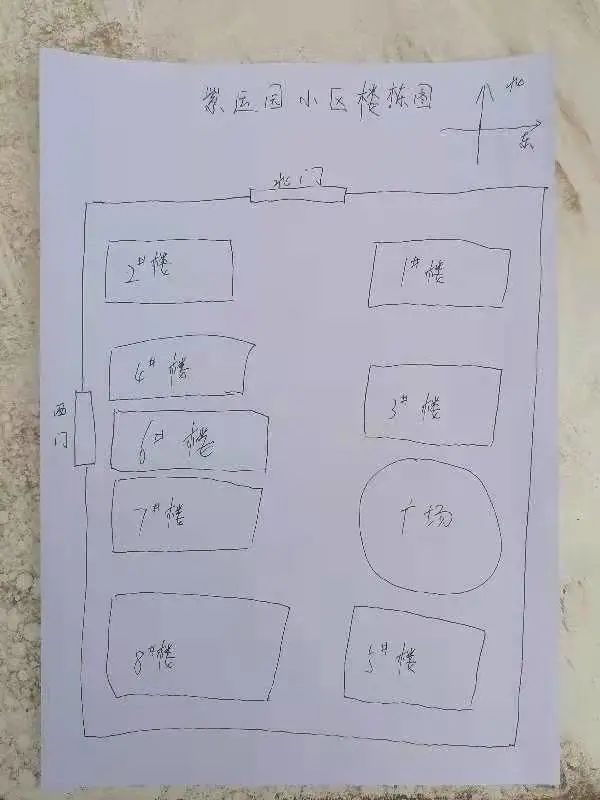 紫运园小区楼栋图
北
东
北门
2#楼
1#楼
4#楼
3#楼
西门
6#楼
7#楼
广场
8#楼
5#楼